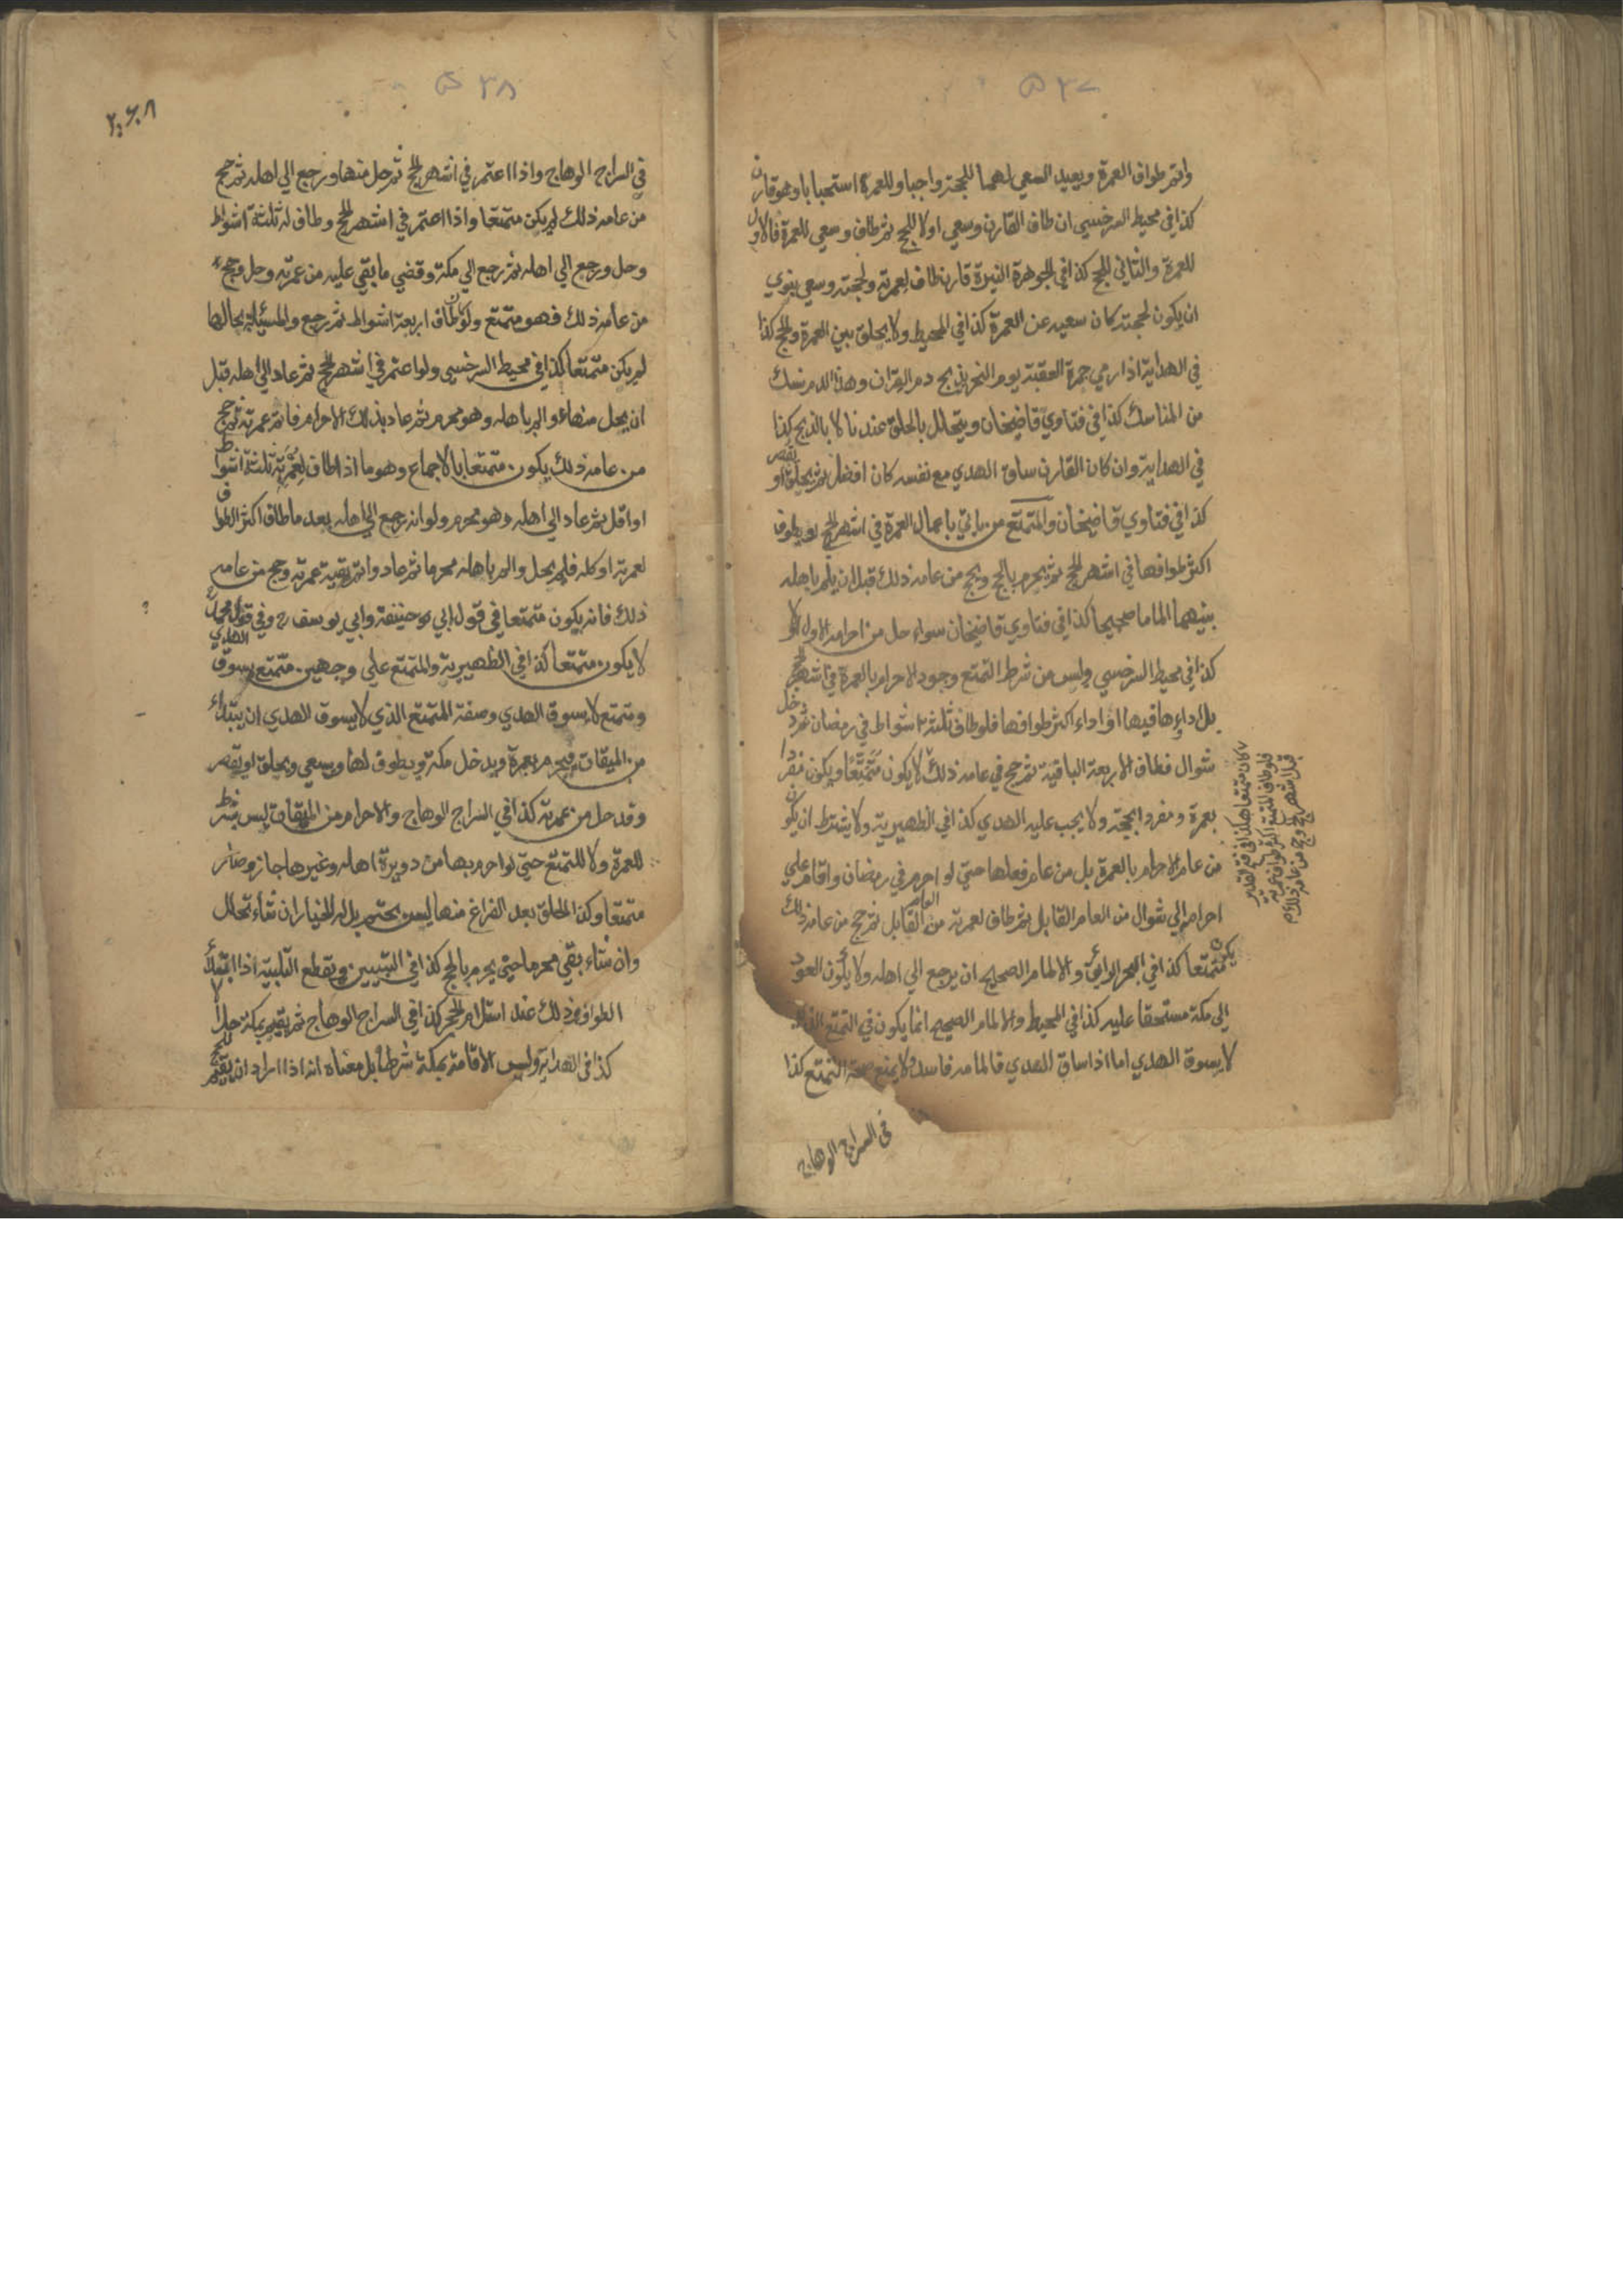 ٥٣٧
واتم طواف العمرة ويعيد السعي لهما للحجة واجبا وللعمرة استحبابا وهو قارن
كذا في محيط السرخسي ان طاف القارن وسعي اولا للحج ثم طاف وسعي للعمرة فالاول
للعمرة والثاني للحج كذا في الجوهرة النيرة قارن طاف لعمرته ولحجته وسعي ينوي
ان يكون لحجته كان سعيه عن العمرة كذا في المحيط ولا يحلق بين العمرة والحج كذا
في الهداية اذا رمي جمرة العقبة يوم النحر ذبح دم القران وهذا الدم نسك
من المناسك كذا في فتاوي قاضيخان ويتحلل بالحلق عندنا لا بالذبح كذا
في الهداية وان كان القارن ساق الهدي مع نفسه كان افضل ثم يحلق او يقصر
كذا في فتاوي قاضيخان والمتمتع من ياتي باعمال العمرة في اشهر الحج او يطوف
اكثر طوافها في اشهر الحج ثم يحرم بالحج ويحج من عامه ذلك قبل ان يلم باهله
بينهما الماما صحيحا كذا في فتاوي قاضيخان سواء حل من احرامه الاول او لا
كذا في محيط السرخسي وليس من شرط التمتع وجود الاحرام بالعمرة في اشهر الحج
بل اداءها فيها او اداء اكثر طوافها فلو طاف ثلثة اشواط في رمضان ثم دخل
شوال فطاف الاربعة الباقية ثم حج في عامه ذلك لا يكون متمتعا ويكون مفردا
بعمرة ومفردا بحجة ولا يجب عليه الهدي كذا في الظهيرية ولا يشترط ان يكون
من عام الاحرام بالعمرة بل من عام فعلها حتي لو احرم في رمضان واقام علي
احرامه الي شوال من العام القابل ثم طاف لعمرته من العام القابل ثم حج من عامه ذلك
يكون متمتعا كذا في البحر الرايق والالمام الصحيح ان يرجع الي اهله ولا يكون العود
الي مكة مستحقا عليه كذا في المحيط والالمام الصحيح انما يكون في التمتع الذي
لا يسوق الهدي اما اذا ساق الهدي فالمامه فاسد لا يمنع صحة التمتع كذا
في السراج الوهاج
كان متمتعا هكذا في فتح القدير
فلو طاف المتمتع اكثر طواف عمرته
قبل اشهر الحج وحج من عامه ذلك لم
٥٣٨
في السراج الوهاج واذا اعتمر في اشهر الحج ثم حل منها ورجع الي اهله ثم حج
من عامه ذلك لم يكن متمتعا واذا اعتمر في اشهر الحج وطاف له ثلثة اشواط
وحل ورجع الي اهله ثم رجع الي مكة وقضي ما بقي عليه من عمرته وحل وحج
من عامه ذلك فهو متمتع ولو كان طاف اربعة اشواط ثم رجع والمسئلة بحالها
لم يكن متمتعا كذا في محيط السرخسي ولو اعتمر في اشهر الحج ثم عاد الي اهله قبل
ان يحل منها والم باهله وهو محرم ثم عاد بذلك الاحرام فاتم عمرته ثم حج
من عامه ذلك يكون متمتعا بالاجماع وهو ما اذا طاف لعمرته ثلثة اشواط
او اقل ثم عاد الي اهله وهو محرم ولو انه رجع الي اهله بعد ما طاف اكثر الطواف
لعمرته او كله فلم يحل والم باهله محرما ثم عاد واتم بقية عمرته وحج من عامه
ذلك فانه يكون متمتعا في قول ابي حنيفة وابي يوسف وفي قول محمد
لا يكون متمتعا كذا في الظهيرية والمتمتع علي وجهين متمتع يسوق الهدي
ومتمتع لا يسوق الهدي وصفة المتمتع الذي لا يسوق الهدي ان يبتداء
من الميقات فيحرم بعمرة ويدخل مكة ويطوف لها ويسعي ويحلق او يقصر
وقد حل من عمرته كذا في السراج الوهاج والاحرام من الميقات ليس بشرط
للعمرة ولا للتمتع حتي لو احرم بها من دويرة اهله وغيرها جاز وصار
متمتعا وكذا الحلق بعد الفراغ منها ليس بحتم بل له الخيار ان شاء تحلل
وان شاء بقي محرما حتي يحرم بالحج كذا في التبيين ويقطع التلبية اذا ابتدأ
الطواف وذلك عند استلام الحجر كذا في السراج الوهاج ثم يقيم بمكة حلالا
كذا في الهداية وليس الاقامة بمكة شرطا بل معناه انه اذا اراد ان يقيم للحج